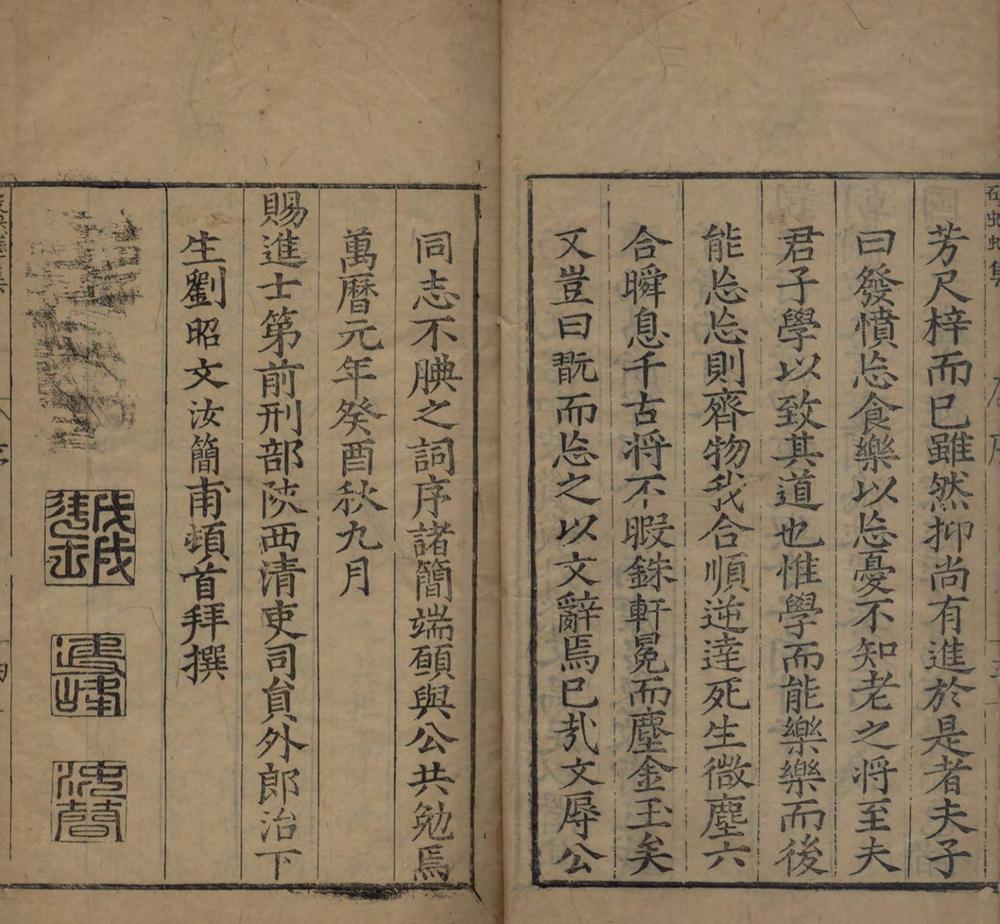 芳尺梓而已雖然抑尚有進於是者夫子
曰發憤忘食樂以忘憂不知老之将至夫
君子學以致其道也惟學而能樂樂而後
能忘忘則齊物我合順逆達死生微塵六
合瞬息千古将不暇銖軒冕而塵金玉矣
又豈曰翫而忘之以文辭焉已㢤文辱公
同志不腆之詞序諸簡端願與公共勉焉
萬曆元年癸酉秋九月
賜進士第前刑部陝西清吏司貟外郎治下
生劉昭文汝簡甫頓首拜撰
汝簡